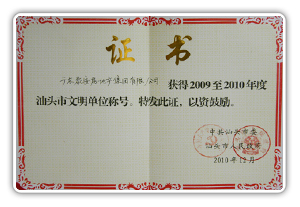 证书
获得2009至2010年度
汕头市文明单位称号。特发此证，以资鼓励。
中共汕头市委
汕头市人民政府
2010年12月